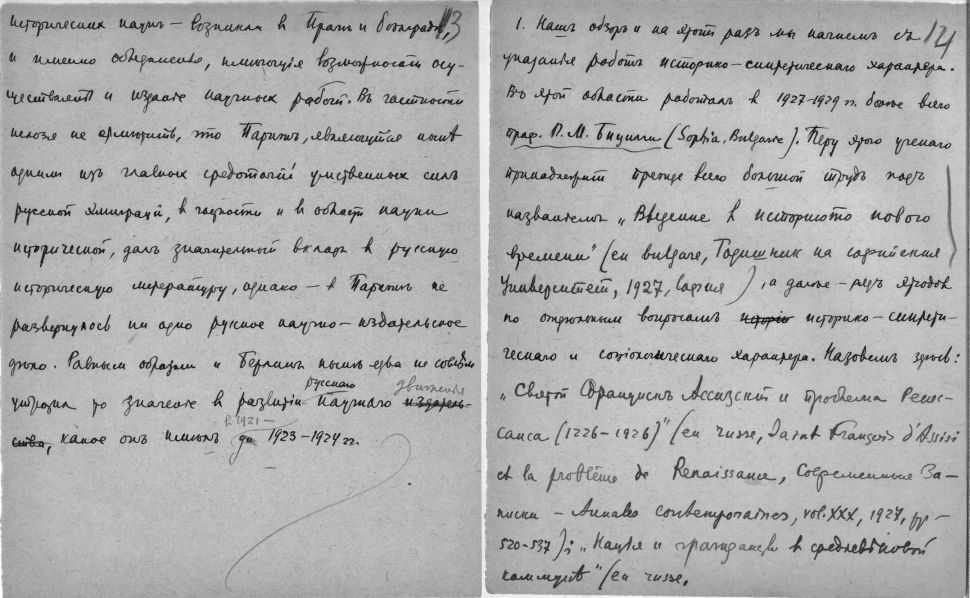 историческихъ наукъ – возникли въ Праге и Белграде,
13
и именно объединенія, имеющія возможность осу-
ществлять и изданіе научныхъ работъ. Въ частности
нельзя не отметить, что Парижъ, являющійся ныне
однимъ изъ главныхъ средоточій умственныхъ силъ
русской эмиграціи, въ частности и въ области науки
исторической, далъ значительный вкладъ въ русскую
историческую литературу, однако – въ Париже не
развернулось ни одно русское научно-издательское
дело. Равнымъ образомъ и Берлинъ ныне едва не совсемъ
русскаго движенія
утратилъ то значеніе въ развитіи научнаго издатель-
ства, какое онъ имелъ до 1923-1924 гг.
въ 1921 –
14
1. Нашъ обзоръ и на этотъ разъ мы начнемъ съ
указанія работъ историко-синтетическаго характера.
Въ этой области работалъ въ 1927-1929 гг. более всего
проф. П. М. Бицилли (Sophia, Bulgarie). Перу этого ученаго
принадлежитъ прежде всего большой трудъ подъ
названіемъ „Введение в историята нового
времени" (en bulgare, Годишник на софийския
Университет, 1927, София), а далее – рядъ этюдовъ
по отдельнымъ вопросамъ историко-синтети-
ческаго и соціологическаго характера. Назовемъ здесь:
„Святой Францискъ Ассизскій и проблема Ренес-
санса (1226-1926)" (en russe, Saint François d'Assisi
et la problème de Renaissance, Современные За-
писки – Annales contemporaines, vol. XXX, 1927, pp –
520-537); „Нація и гражданство в средневековой
коммуне" (en russe,